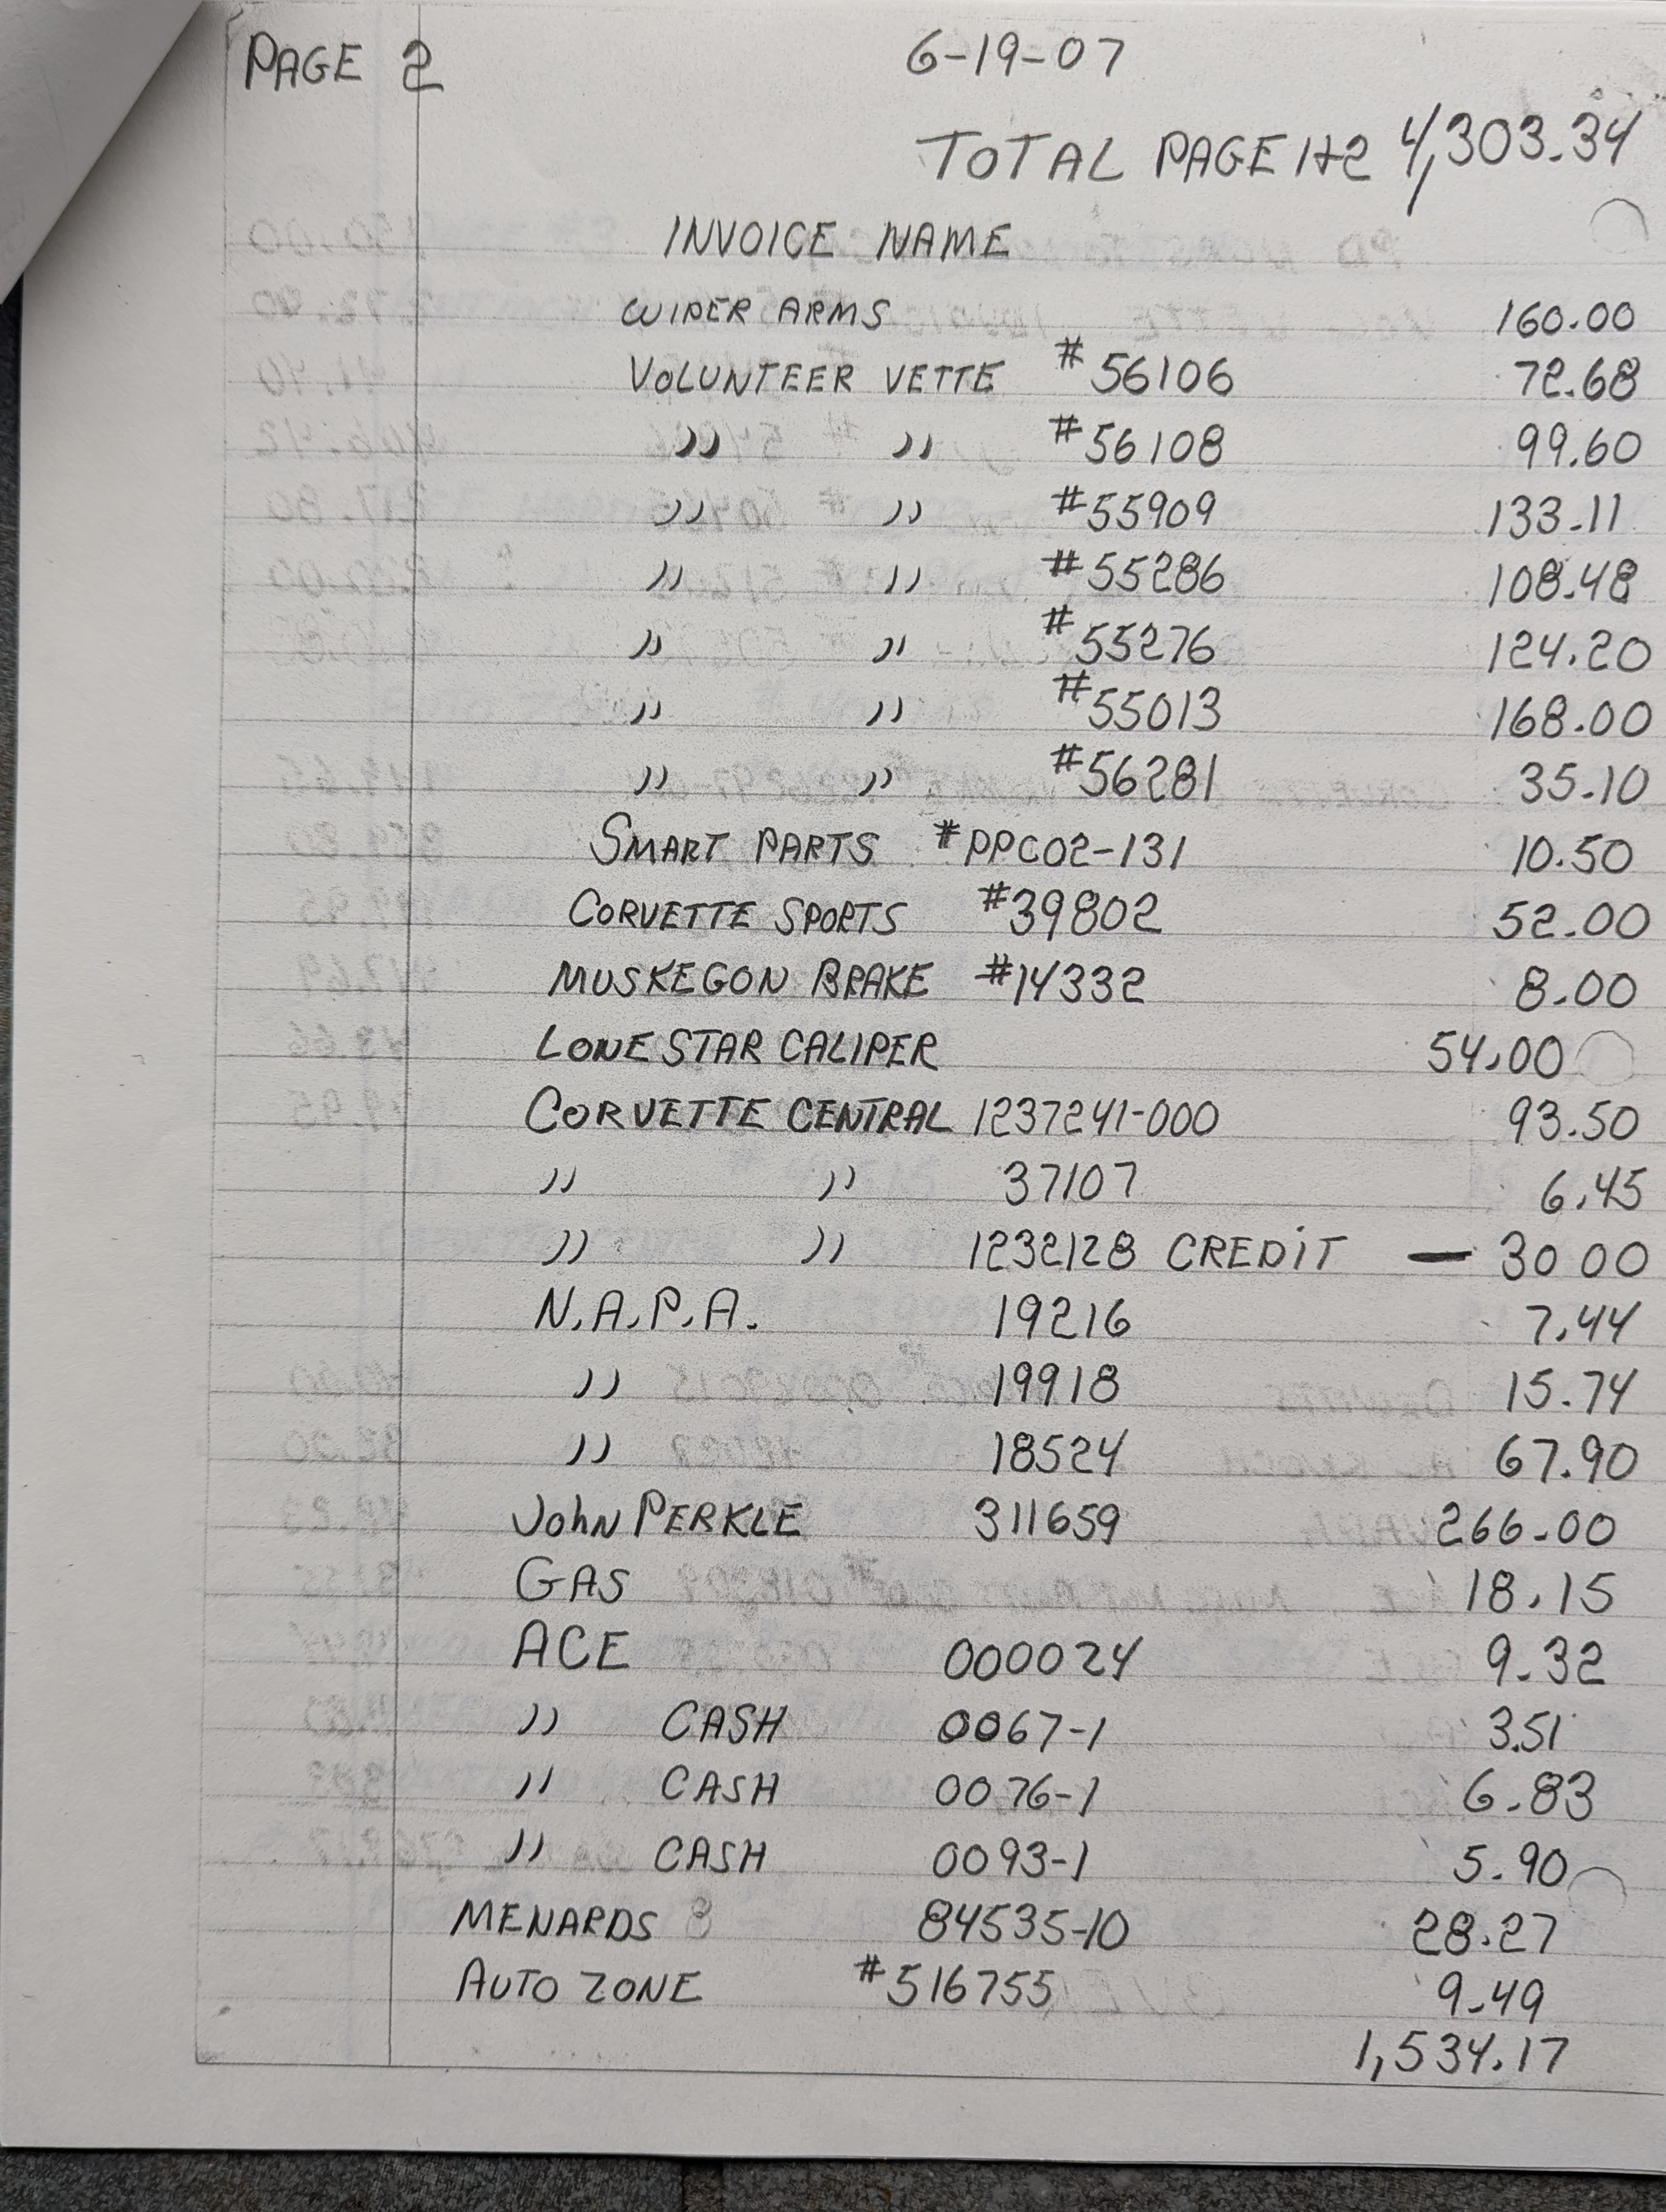 PAGE 2 6-19-07
TOTAL PAGE 1+2 4,303.34
INVOICE NAME
WIPER ARMS 160.00
VOLUNTEER VETTE #56106 72.68
" " #56108 99.60
" " #55909 133.11
" " #55286 108.48
" " #55276 124.20
" " #55013 168.00
" " #56281 35.10
SMART PARTS #PPC02-131 10.50
CORVETTE SPORTS #39802 52.00
MUSKEGON BRAKE #14332 8.00
LONE STAR CALIPER 54.00
CORVETTE CENTRAL 1237241-000 93.50
" " 37107 6.45
" " 1232128 CREDIT — 30 00
N.A.P.A. 19216 7.44
" 19918 15.74
" 18524 67.90
JOhN PERKLE 311659 266.00
GAS 18.15
ACE 000024 9.32
" CASH 0067-1 3.51
" CASH 0076-1 6.83
" CASH 0093-1 5.90
MENARDS 84535-10 28.27
AUTO ZONE #516755 9.49
1,534.17